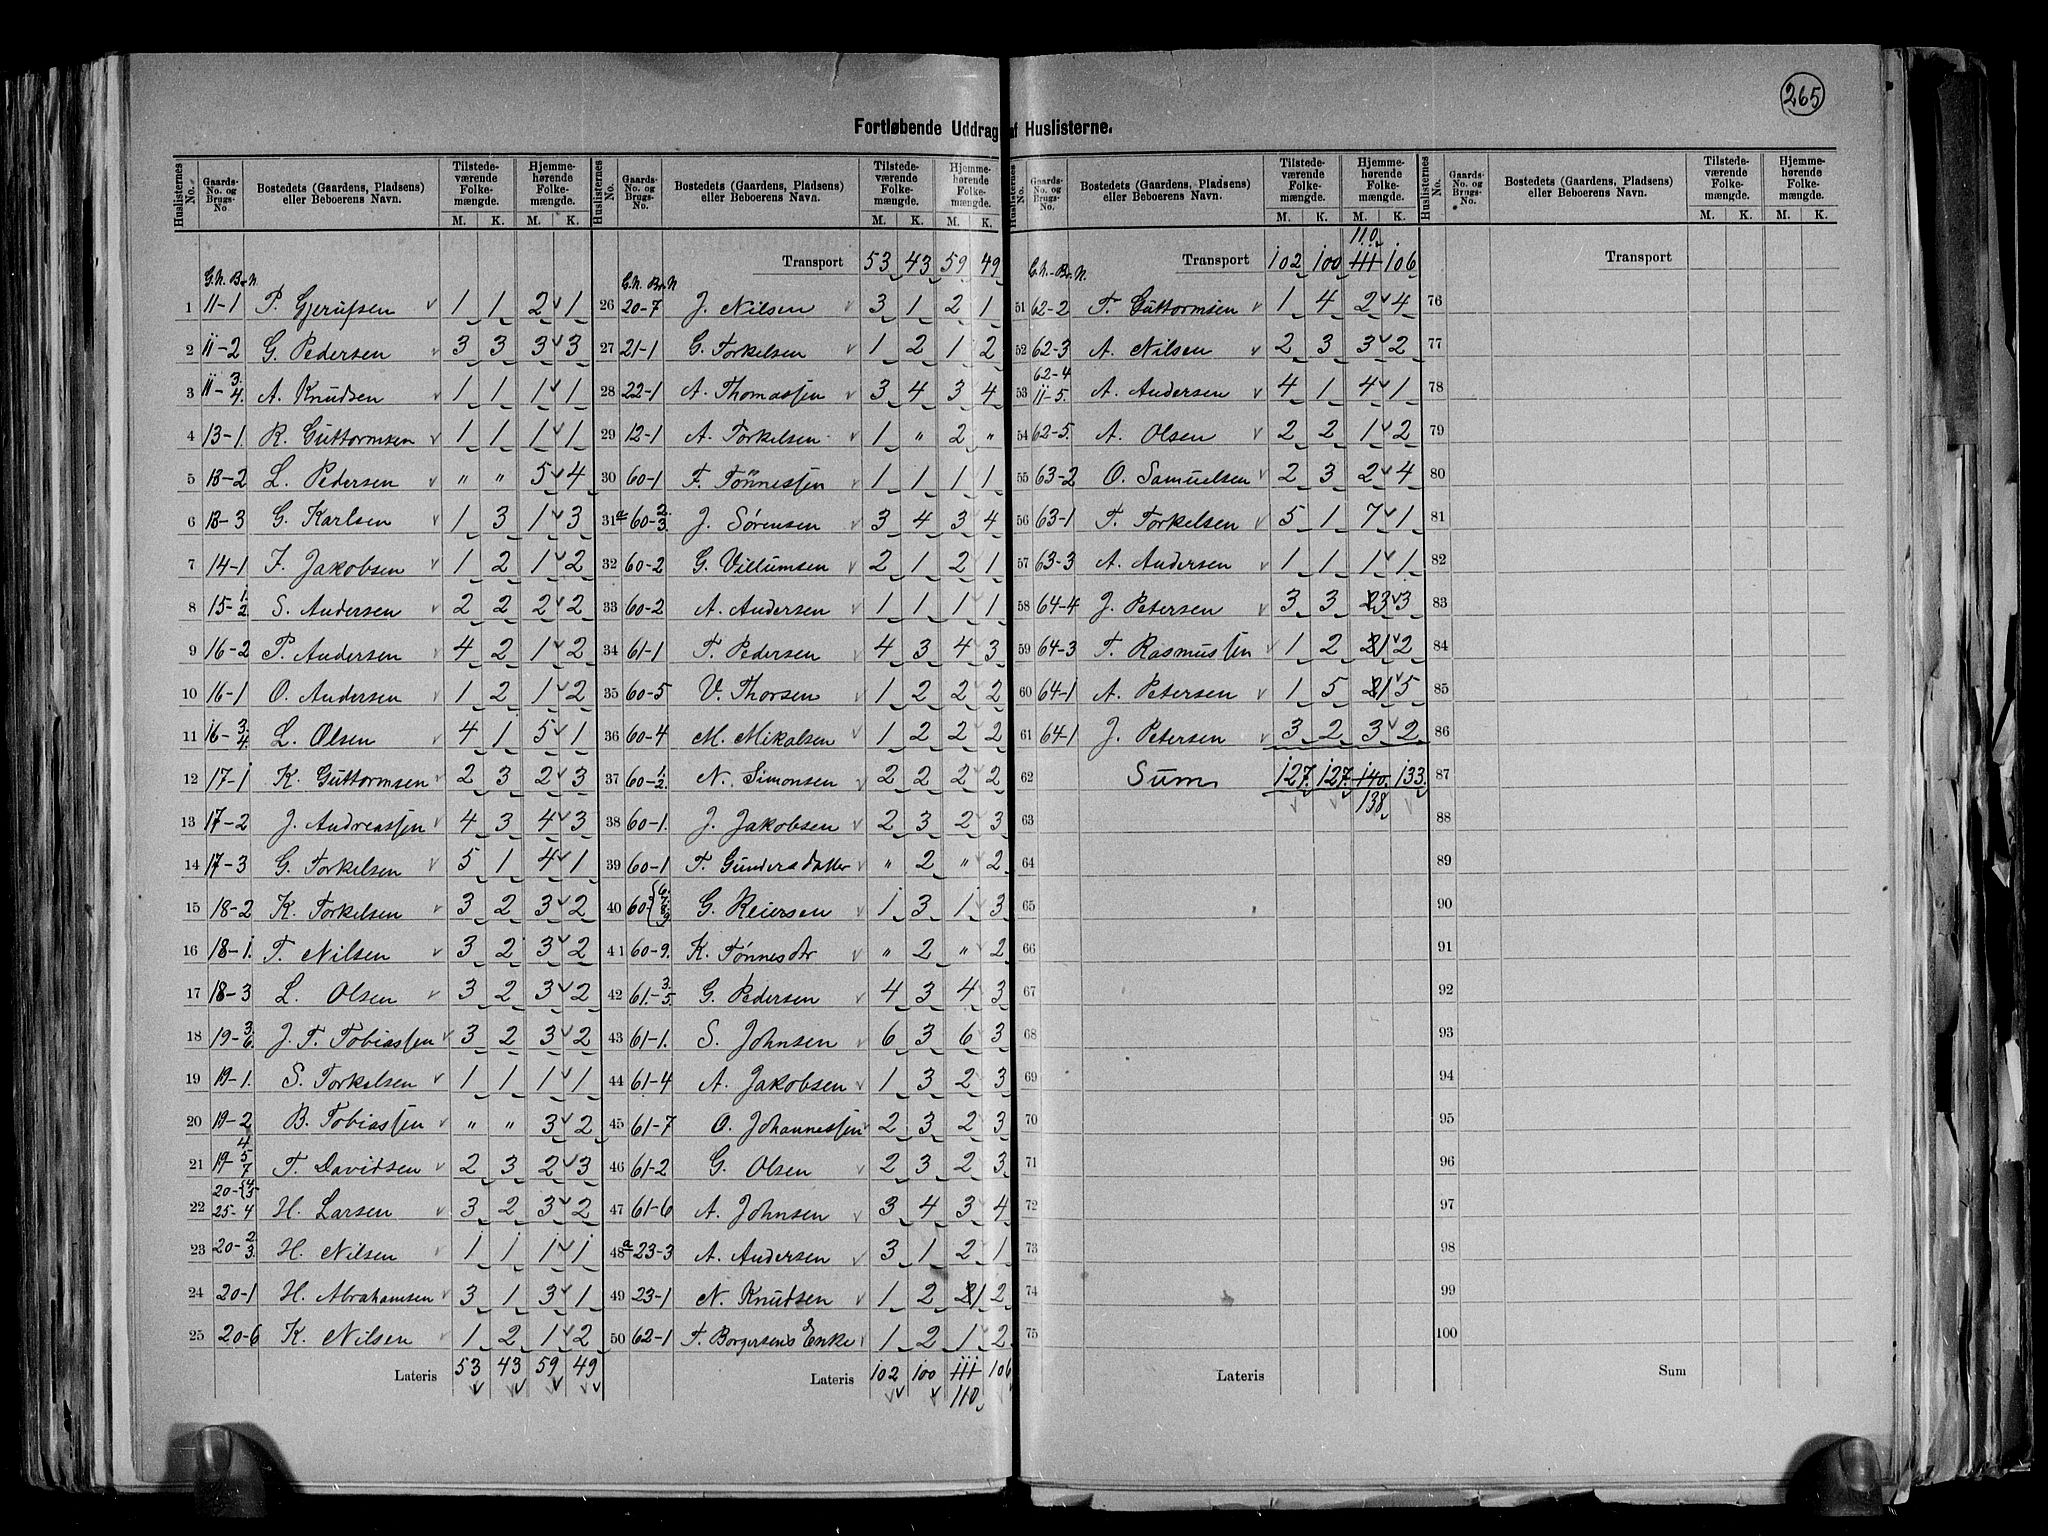 265
Fortløbende Uddrag af Huslisterne.
Huslisternes No. Gaards-No. og Brugs-No. Bostedets (Gaardens, Pladsens) eller Beboerens Navn. Tilstede-værende Folke-mængde. M. K. Hjemme-hørende Folke-mængde. M. K.
G.N. Br.N
1 11-1 P. Gjerufsen 1 1 2 1
2 11-2 G. Pedersen 3 3 3 3
3 11-3. 4. A. Knudsen 1 1 1 1
4 13-1. R. Guttormsen 1 1 1 1
5 13-2 L. Pedersen " " 5 4
6 13-3 G. Karlsen 1 3 1 3
7 14-1 J. Jakobsen 1 2 1 2
8 15-1. 2 S. Andersen 2 2 2 2
9 16-2 P. Andersen 4 2 1 2
10 16-1 O. Andersen 1 2 1 2
11 16-3. 4. L. Olsen 4 1 5 1
12 17-1 K. Guttormsen 2 3 2 3
13 17-2 J. Andreassen 4 3 4 3
14 17-3 G. Torkelsen 5 1 4 1
15 18-2 K. Torkelsen 3 2 3 2
16 18-1. T. Nilsen 3 2 3 2
17 18-3 L. Olsen 3 2 3 2
18 19-3. 6. J. T. Tobiassen 3 2 3 2
19 19-1. S. Torkelsen 1 1 1 1
20 19-2 B. Tobiassen " " 3 2
21 19-4 5 7 T. Davidsen 2 3 2 3
22 20-4 3 25-4 H. Larsen 3 2 3 2
23 20-2. 3. H. Nilsen 1 1 1 1
24 20-1 H. Abrahamsen 3 1 3 1
25 20-6 K. Nilsen 1 2 1 2
Lateris 53 43 59 49
Huslisternes No. Gaards-No. og Brugs-No. Bostedets (Gaardens, Pladsens) eller Beboerens Navn. Tilstede-værende Folke-mængde. M. K. Hjemme-hørende Folke-mængde. M. K.
Transport 53 43 59 49
G.N. Br.N
26 20-7 J. Nilsen 3 1 2 1
27 21-1 G. Torkelsen 1 2 1 2
28 22-1 A. Thomassen 3 4 3 4
29 12-1 A. Torkelsen 1 " 2 "
30 60-1 F. Tönnessen 1 1 1 1
31a 60-2. 3. J. Sørensen 3 4 3 4
32 60-2 G. Villumsen 2 1 2 1
33 60-2 A. Andersen 1 1 1 1
34 61-1 T. Pedersen 4 3 4 3
35 60-5 V. Thorsen 1 2 2 2
36 60-4 M. Mikalsen 1 2 2 2
37 60-1. 2. N. Simonsen 2 2 2 2
38 60-1. J. Jakobsen 2 3 2 3
39 60-1 T. Gundersdatter " 2 " 2
40 60- G. Reiersen 1 3 1 3
41 60-9. K. Tønnesdtr " 2 " 2
42 61.-3. 5. G. Pedersen 4 3 4 3
43 61-1. S. Johnsen 6 3 6 3
44 61-4 A. Jakobsen 1 3 2 3
45 61-7 O. Johannessen 2 3 2 3
46 61-2 G. Olsen 2 3 2 3
47 61-6 A. Johnsen 3 4 3 4
48a 23-3 A. Andersen 3 1 2 1
49 23-1 N. Knudsen 1 2 1 2
50 62-1 T. Borgersens Enke 1 2 1 2
Lateris 102 100 111 106
110
Huslisternes No. Gaards-No. og Brugs-No. Bostedets (Gaardens, Pladsens) eller Beboerens Navn. Tilstede-værende Folke-mængde. M. K. Hjemme-hørende Folke-mængde. M. K.
110
Transport 102 100 111 106
G.N.-Br.N.
51 62-2 T. Guttormsen 1 4 2 4
52 62-3 A. Nilsen 2 3 3 2
53 62-4 11-5. A. Andersen 4 1 4 1
54 62-5. A. Olsen 2 2 1 2
55 63-2 O. Samuelsen 2 3 2 4
56 63-1 T. Torkelsen 5 1 7 1
57 63-3 A. Andersen 1 1 1 1
58 64-4 J. Petersen 3 3 3 3
59 64-3 T. Rasmussen 1 2 1 2
60 64-1 A. Petersen 1 5 1 5
61 64-1 J. Petersen 3 2 3 2
62 Sum 127. 127. 140. 133.
138
63
64
65
66
67
68
69
70
71
72
73
74
75
Lateris
Huslisternes No. Gaards-No. og Brugs-No. Bostedets (Gaardens, Pladsens) eller Beboerens Navn. Tilstede-værende Folke-mængde. M. K. Hjemme-hørende Folke-mængde. M. K.
Transport
76
77
78
79
80
81
82
83
84
85
86
87
88
89
90
91
92
93
94
95
96
97
98
99
100
Sum